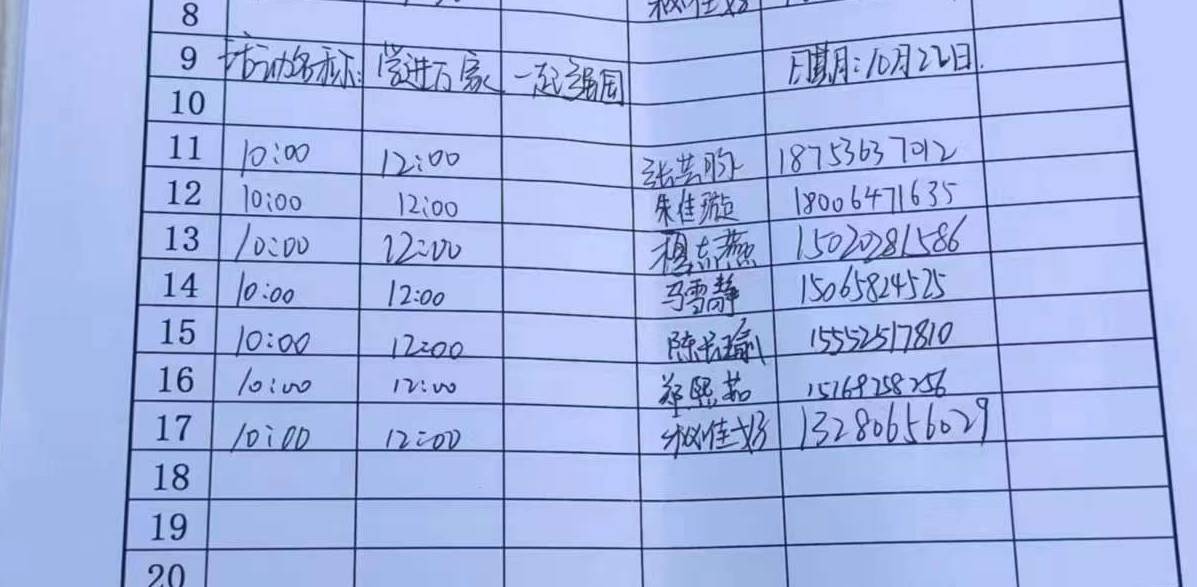 8
9 活动名称: 学进万家 一起强国 日期: 10月22日.
10
11 10:00 12:00 18753637012
12 10:00 12:00 朱佳璇 18006471635
13 10:00 12:00 穆志燕 15020281586
14 10:00 12:00 马雪静 15065824525
15 10:00 12:00 陈长瑜 15552517810
16 10:00 12:00 郑熙茹 15169258256
17 10:00 12:00 13280656029
18
19
20